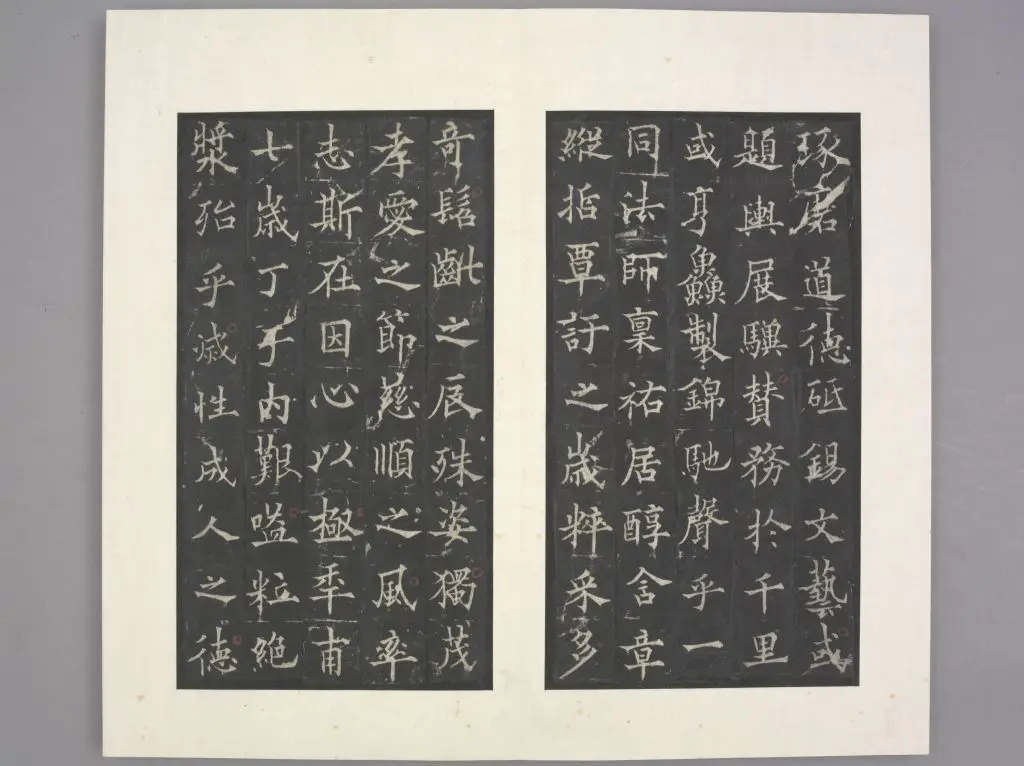 琢磨道德砥錫文藝或
題輿展驥贊務於千里
或亨鱻製錦馳聲乎一
同法師稟祐居醇含章
縱哲覃訏之歲粹采多
奇髫齓之辰殊姿獨茂
孝愛之節慈順之風率
志斯在因心以極年甫
七歲丁于內艱嗌粒絕
漿殆乎滅性成人之德